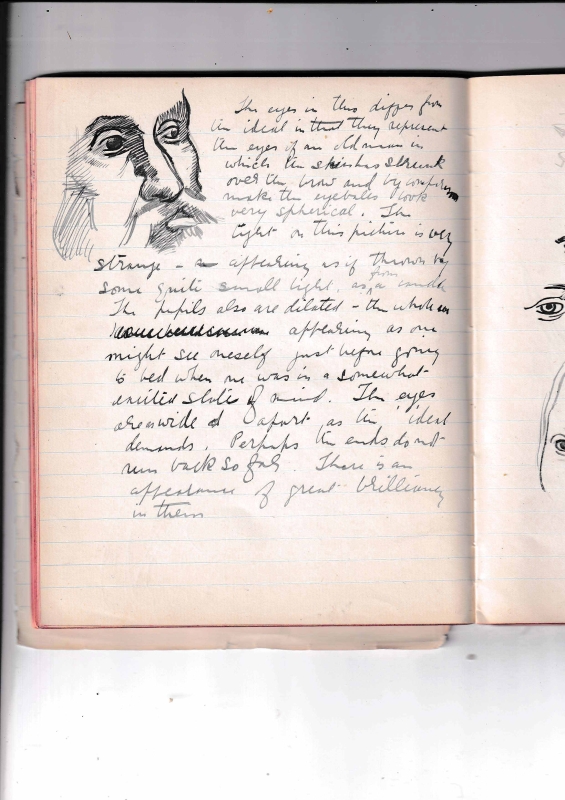 The eyes in this differ from
the ideal in that they represent
the eyes of an old man in
which the skin has shrunk
over the brow and by comparison
make the eyeballs look
very spherical. The
light on this picture is very
strange - appearing as if thrown by
some quite small light, as from a candle
The pupils also are dilated - the whole
appearing as one
might see oneself just before going
to bed when one was in a somewhat
excited state of mind. The eyes
are as wide apart as the ideal
demands. Perhaps the ends do not
run back so far. There is an
appearance of great brilliancy
in them